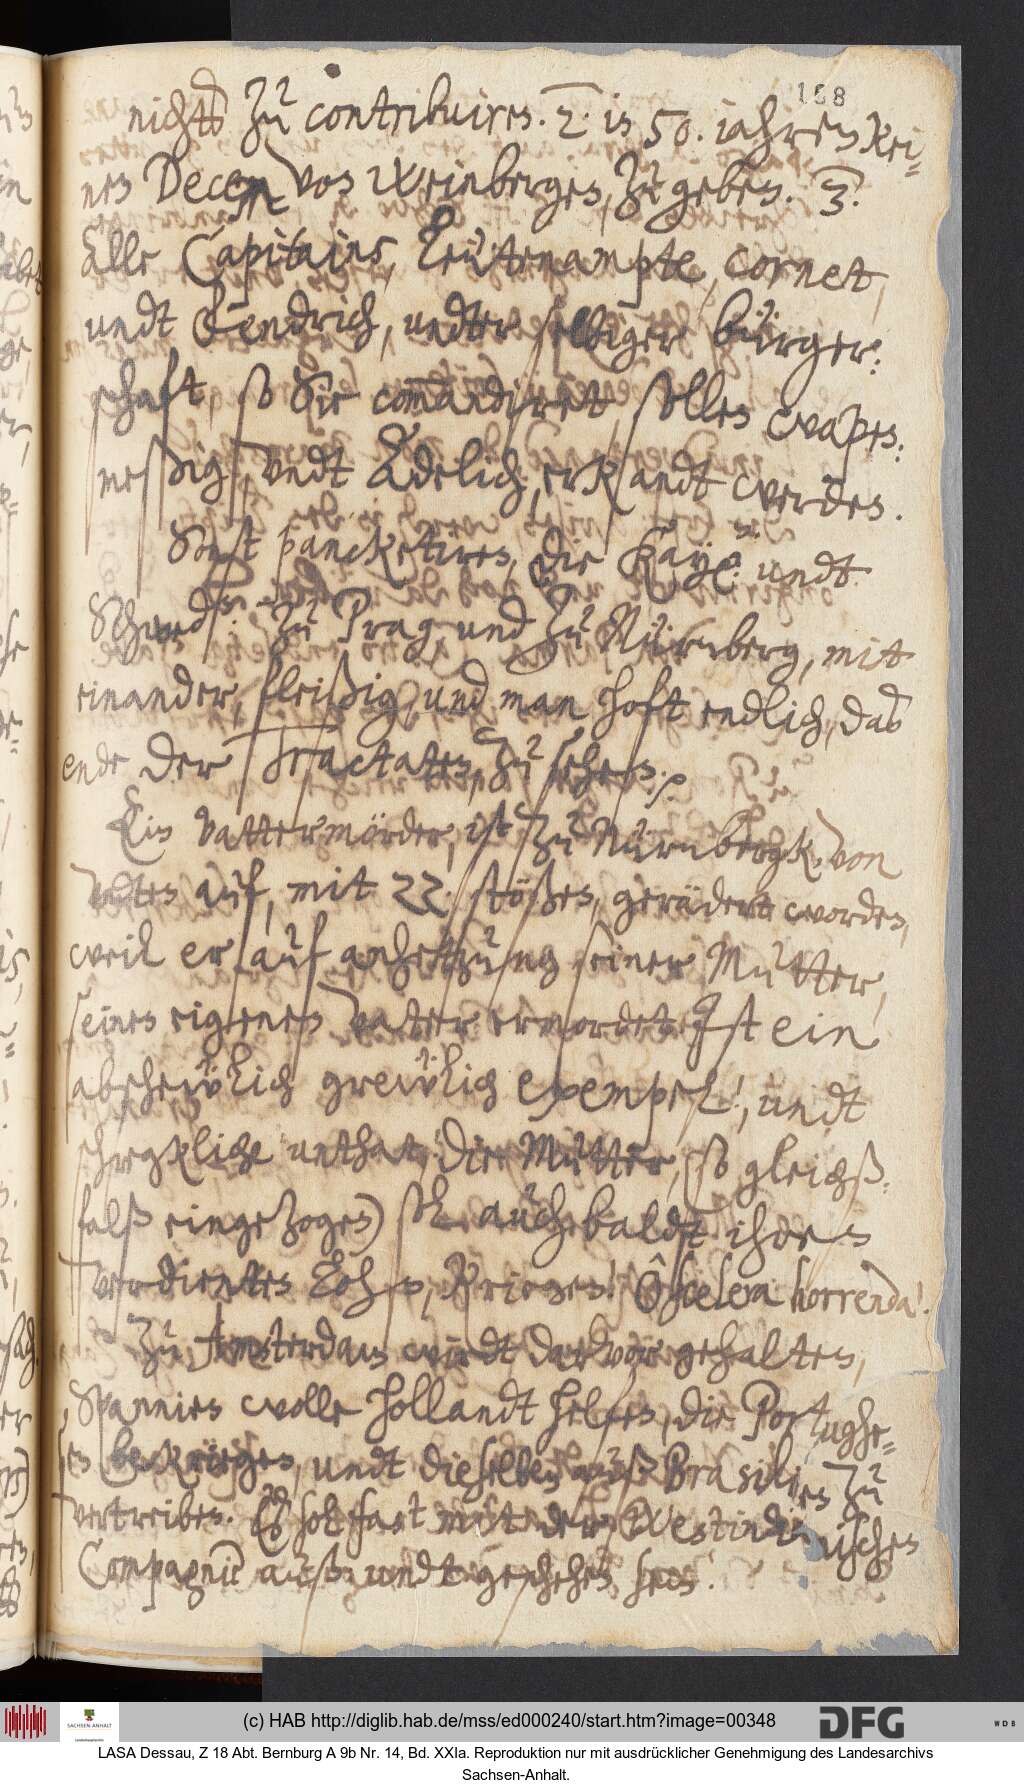 168
nichts zu contribuiren. 2. in 50. iahren kei-
nen Decem von Weinbergen, zu geben. 3.
Alle Capitains, Leütenampte, Cornet,
undt Fendrich, undter selbiger bürger:
schaft, so Sie com̄andiret, sollen wapen:
meßig, undt Adelich, erkandt werden.
Sonst panckettiren, die Kayß.n undt
Schwed.n zu Prag, und zu Nürnberg, mit
einander, fleißig, und man hoft endlich, das
ende der Tractaten, zu sehen.
Ein Vattermörder, ist zu Nürnbergk, von
unten auf, mit 22. stößen, gerädert worden,
weil er auf anhetzung seiner Mutter,
seinen eigenen Vatter ermordet. Ist ein
abscheülich greülich exempel!, undt
schregkliche unthat, die Mutter, (so gleichß:
falß eingezogen) sol auch baldt ihren
verdienten Lohn, kriegen! Ô scelera horrenda!
Zu Amsterdam wirdt darvor gehalten,
Spannien wolle hollandt helfen, die Portughe-
sen bekriegen, undt dieselben auß Brasilien zu
vertreiben. Es sol fast mit der WestIndianischen
Compagnie auß undt geschehen sein.
(c) HAB http://diglib.hab.de/mss/ed000240/start.htm?image=00348
SACHSEN-ANHALT
DFG
WDB
LASA Dessau, Z 18 Abt. Bernburg A 9b Nr. 14, Bd. XXIa. Reproduktion nur mit ausdrücklicher Genehmigung des Landesarchivs
Sachsen-Anhalt.